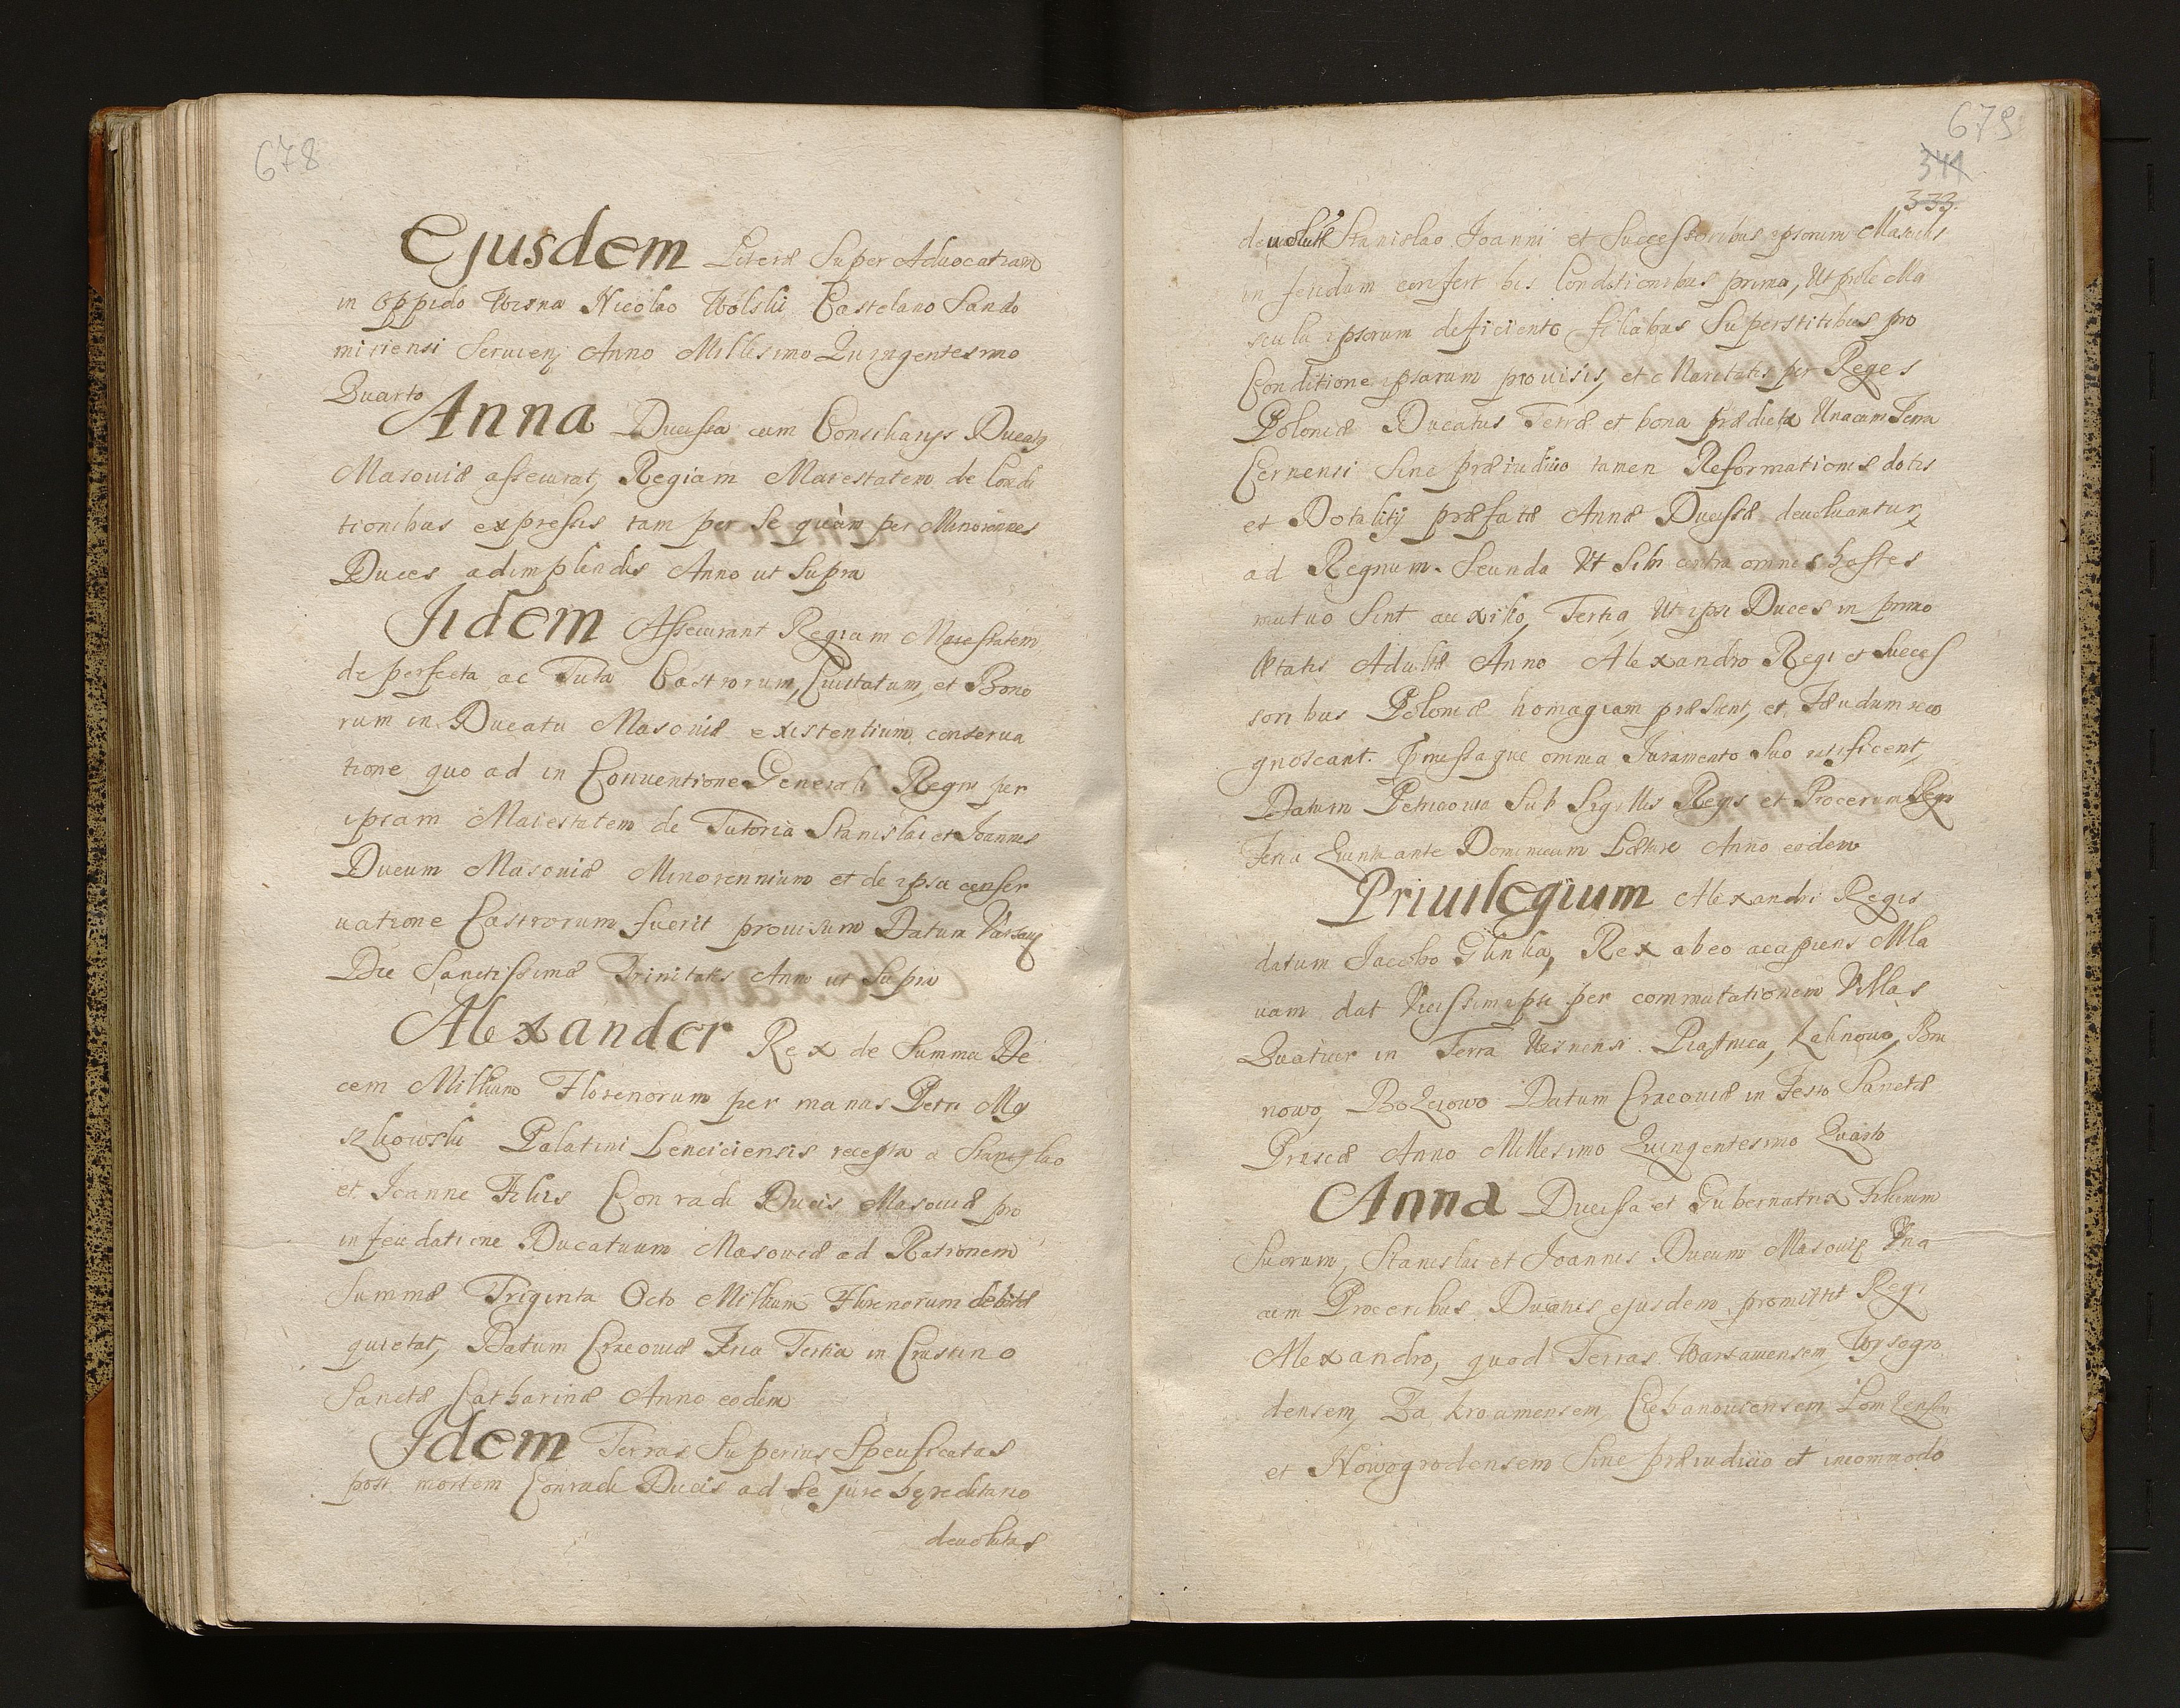 678
Ejusdem Literæ Super Aduocatiam
in Oppido Wizna Nicolao Wolski Castelano Sando
miriensi Seruienj Anno Millesimo Quingentesimo
Quarto
Anna Ducissa cum Consiliarijs Ducatus
Masouiæ assecurat, Regiam Maiestatem de Condi
tionibus expressis tam per Se quàm per Minorennes
Duces adimplendis Anno ut Supra
Jidem Assecurant Regiam Maiestatem,
de perfecta ac Tuta Castrorum, Ciuitatum, et Bono
rum in Ducatu Masouiæ existentium conserua
tione quo ad in Conuentione Generali Regni per
ipsam Maiestatem de Tutoria Stanislai et Joannis
Ducum Masouiæ Minorennium et de ipsa conser
uatione Castrorum fuerit prouisum Datum Varsauię
Die Sanctissimæ Trinitatis Anno ut Supra
Alexander Rex de Summa De
cem Millium Florenorum per manus Petri My
szkowski Palatini Lenciciensis recepta a Stanislao
et Joanne Filijs Conradi Ducis Masouiæ pro
infeudatione Ducatuum Masouiæ ad Rationem
Summæ Triginta Octo Millium Florenorum debitæ
quietat, Datum Cracouiæ Feria Tertia in Crastino
Sanctæ Catharinæ Anno eodem
Idem Terras Superius Specificatas
post mortem Conradi Ducis ad Se jure hęreditario
deuolutas
679
341
333.
deuolutas Stanislao Joanni et Successoribus ipsorum Masculis
in feudum confert his Conditionibus prima, Ut prole Ma
scula ipsorum deficiente filiabus Superstitibus pro
Conditione ipsarum prouisis, et Maritatis per Reges
Poloniæ Ducatus Terræ et bona prædicta Unacum Terra
Cernensi Sine præiudicio tamen Reformationis dotis
et Dotalitij præfatæ Annæ Ducissæ deuoluantur
ad Regnum. Secunda Ut Sibi contra omnes hostes
mutuo Sint auxilio, Tertia Ut ipsi Duces in primo
Ætatis Adultæ Anno Alexandro Regi et Succes
soribus Poloniæ homagium præstent, et Fæudum reco
gnoscant. Præmissaque omnia Juramento Suo ratificent,
Datum Petricouia Sub Sigillis Regis et Procerum Regni
Feria Quinta ante Dominicam Lætare Anno eodem
Priuilegium Alexandri Regis
datum Jacobo Glinka, Rex ab eo accipiens Mla
uam dat Vicissim ipsi per commutationem Villas
Quatuor in Terra Visnensi. Piastnica, Kalinowo, Bro
nowo, Bożeiowo Datum Cracouiæ in Festo Sanctæ
Priscæ Anno Millesimo Quingentesimo Quarto
Anna Ducissa et Gubernatrix Filiorum
Suorum, Stanislai et Joannis Ducum Masouię Vna
cum Proceribus Ducatus ejusdem promittit Regi
Alexandro, quod Terras Warsauiensem Wysogro
densem, Zakroczimensem, Ciechanouiensem Lomzensem
et Nowogrodensem Sine præiudicio et incommodo